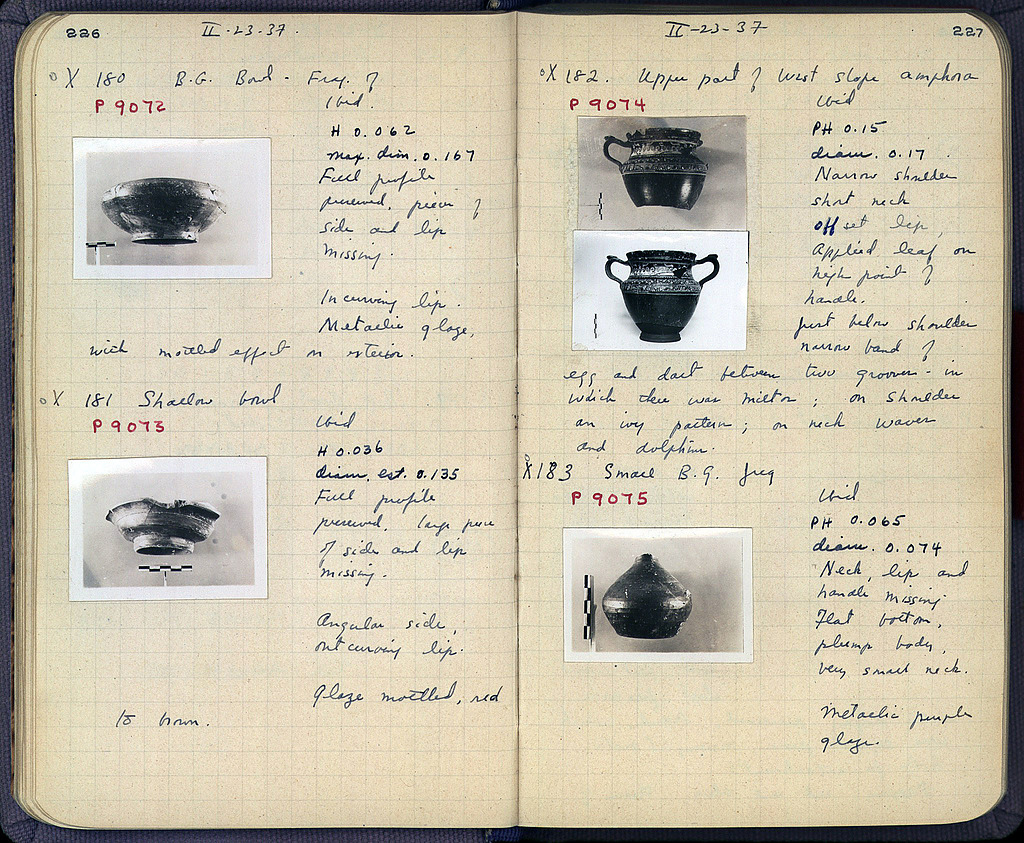 226
II-23-37.
X 180 B.G. Bowl - Frag. of
P 9072
Ibid.
H 0.062
max. dim. 0.167
Full profile
preserved, pieces of
side and lip
missing.
Incurving lip.
Metallic glaze,
with mottled effect on exterior.
X 181 Shallow bowl
P 9073
Ibid
H 0.036
diam. est. 0.135
Full profile
preserved, large piece
of side and lip
missing.
Angular side,
outcurving lip.
Glaze mottled, red
to brown.
II-23-37
227
X 182. Upper part of West slope amphora
P 9074
Ibid
PH 0.15
diam. 0.17
Narrow shoulder
short neck
offset lip,
Applied leaf on
high point of
handle.
Just below shoulder
narrow band of
egg and dart between two grooves - in
which there was miltos; on shoulder
an ivy pattern; on neck waves
and dolphins.
X183 Small B.G. Jug
P 9075
Ibid
PH 0.065
diam. 0.074
Neck, lip and
handle missing
Flat bottom,
plump body,
very small neck.
Metallic purple
glaze.